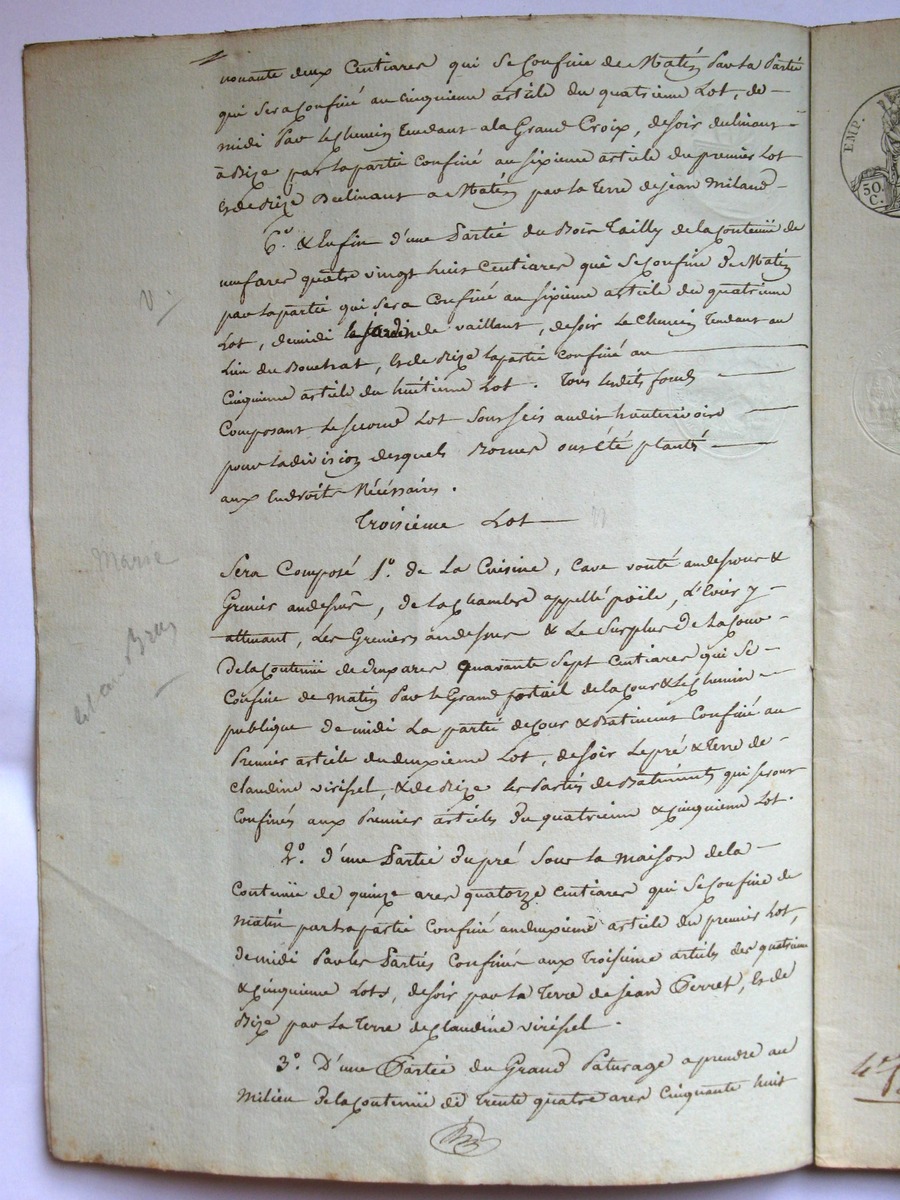 nonante deux Centiares qui se Confine de Matin Par la Partie
qui sera Confiné au cinquieme article du quatrieme Lot, de
midi Par le Chemin Tendant a la Grand Croix, de soir declinant
à Bize par la partie Confiné au sixieme article du premier Lot
et de Bize Declinant a Matin par la Terre de jean Miland
6.º & Enfin d'une Partie du Bois Tailly de la Contenüe de
neuf ares quatre vingt huit Centiares qui se Confine de Matin
par la partie qui sera Confiné au sixieme article du quatrieme
Lot, de midi le jardin de vaillant, de soir Le Chemin Tendant au
Lieu du Bouchat, et de Bize la partie Confiné au
Cinquieme article du huitieme Lot. Tous lesdits fonds
Composant Le second Lot sous seis audit hauterivoire
pour la division desquels Bornes ont été plantés
aux Endroits Nécéssaires.
Troisieme Lot
Sera Composé 1.º de La Cuisine, Cave vouté au dessous &
Grenier au dessus, de la Chambre appellé poële, L'Evier y
attenant, Les Greniers au dessus & Le Surplus de La Cour
de la Contenüe de deux ares quarante Sept Centiares qui se
Confine de Matin Par le Grand portail de la Cour & Le Chemin
publique de midi La partie de Cour & Batiment Confiné au
Premier article du deuxieme Lot, de soir Le pré & Terre de
Claudine virissel, & de Bize les Parties de Batiments qui seront
Confinés aux Premier articles du quatrieme & Cinquieme Lot.
2.º d'une Partie du pré Sous La Maison de la
Contenüe de quinze ares quatorze Centiares qui se Confine de
Matin par la partie Confiné au deuxieme article du premier Lot,
de midi Par les Parties Confinés aux Troisieme articles des quatrieme
& Cinquieme Lots, de soir par la Terre de jean Ferret, et de
Bize par La Terre de Claudine virissel.
3.º D'une Partie du Grand Paturage a prendre au
Milieu de la Contenüe de Trente quatre ares Cinquante huit
V.
Marie
EMP.
50.
C.
4e